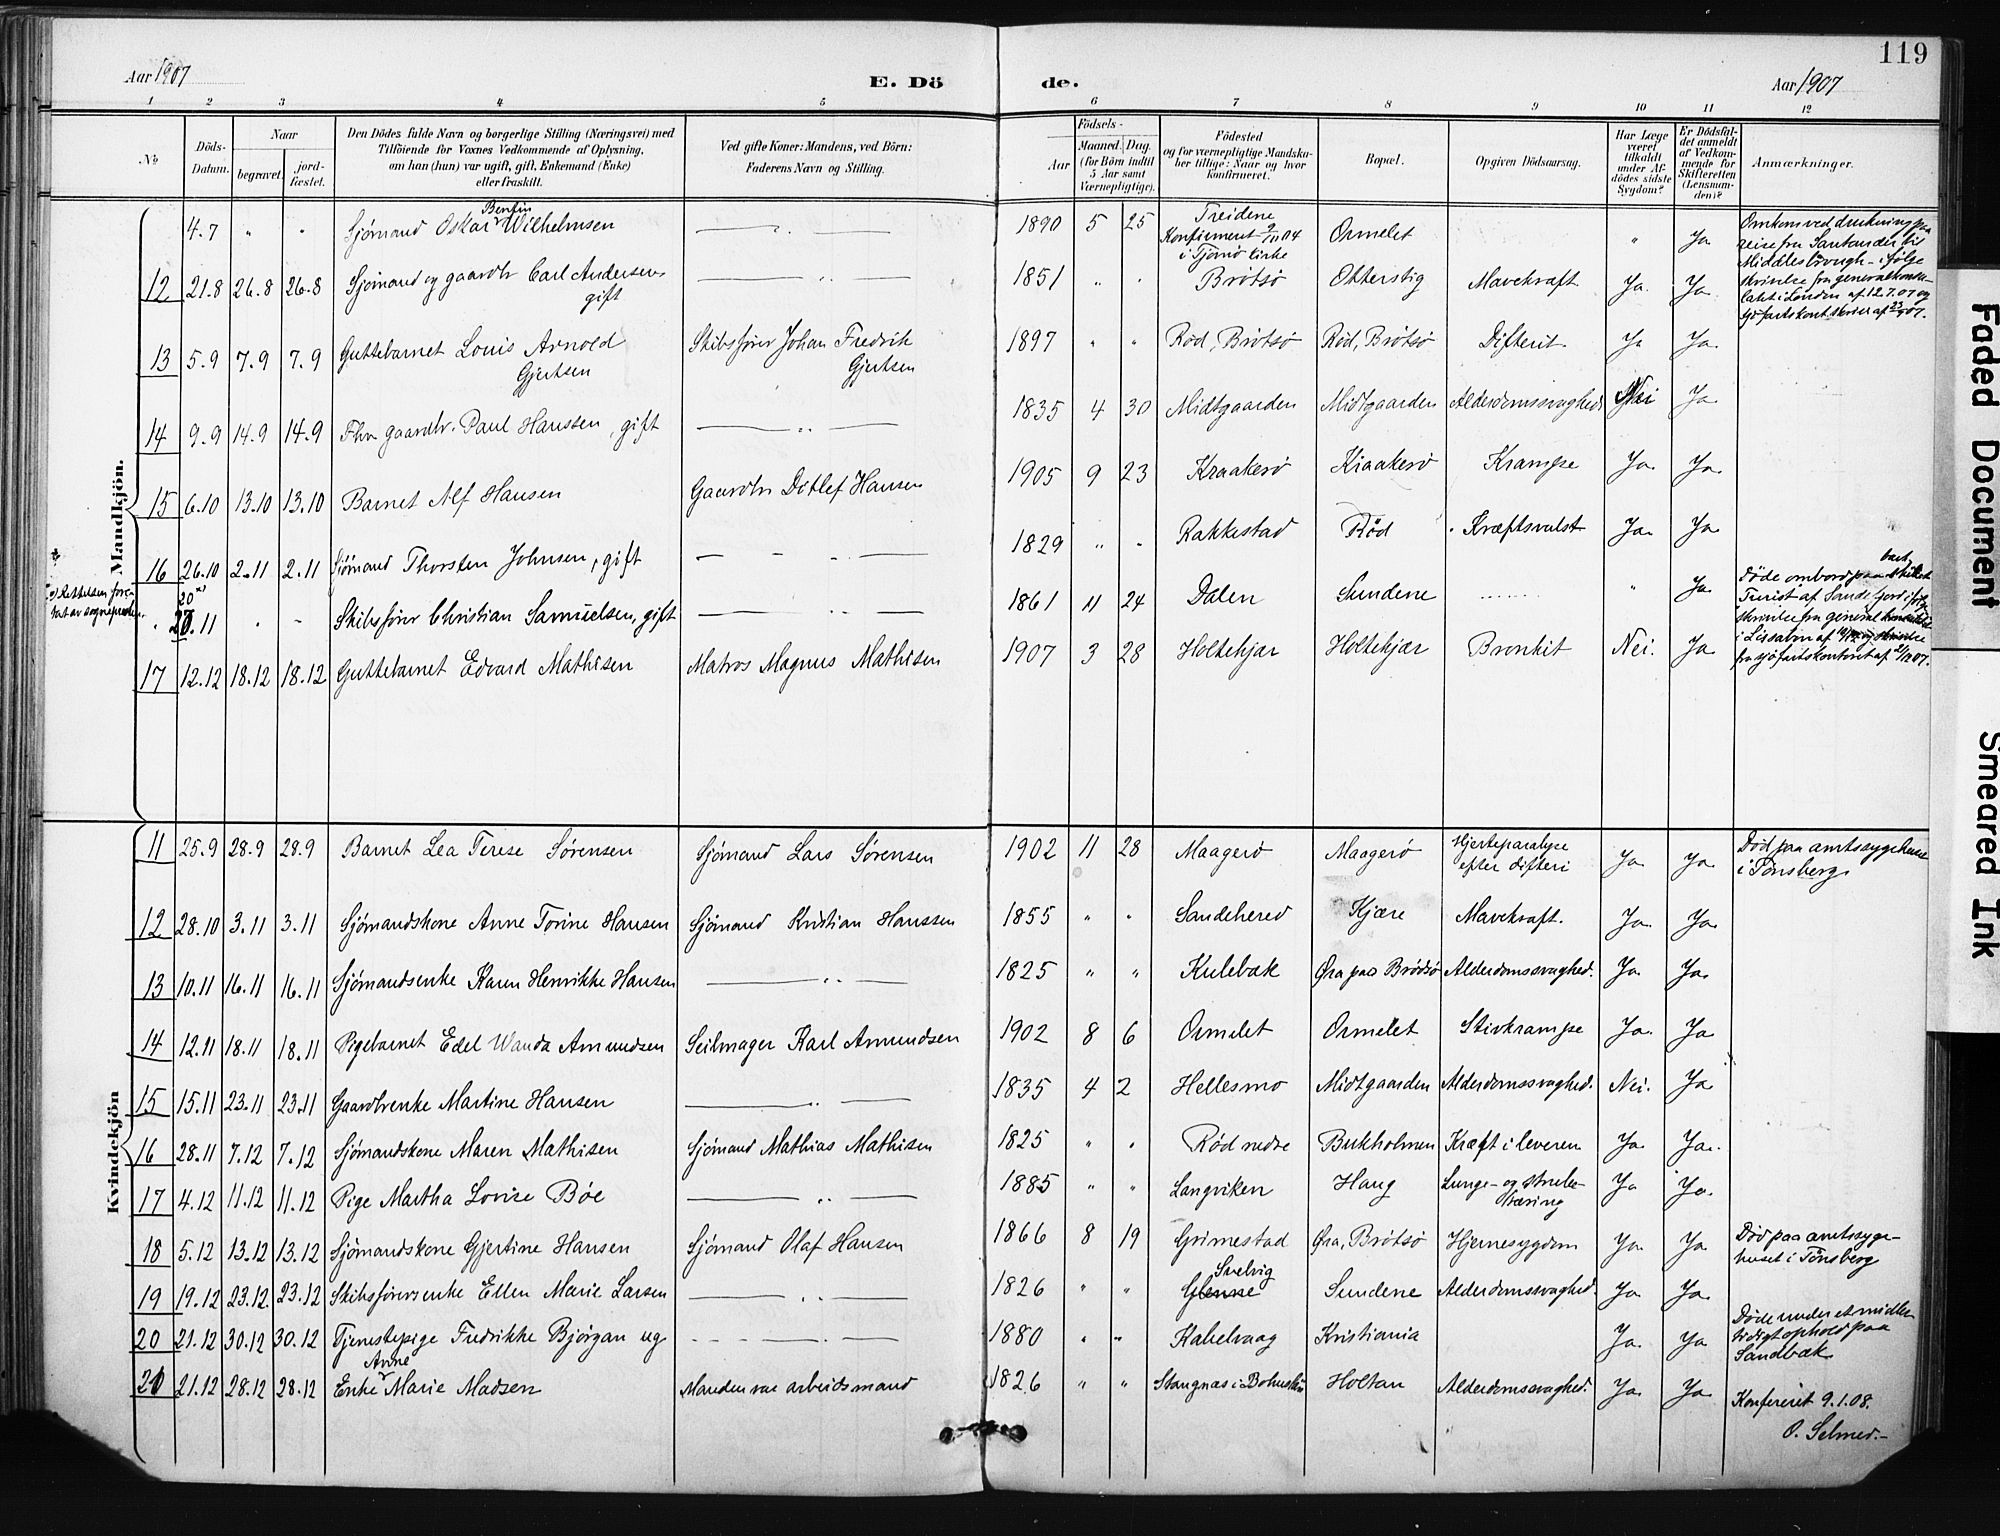 119
Aar 1907 E. Dö de. Aar 1907
1 2 3 4 5 6 7 8 9 10 11 12
№ Döds-Datum. Naar begravet. jord-fæstet. Den Dödes fulde Navn og borgerlige Stilling (Næringsvei) med Tilföiende for Voxnes Vedkommende af Oplysning, om han (hun) var ugift, gift, Enkemand (Enke) eller fraskilt. Ved gifte Koner: Mandens, ved Börn: Faderens Navn og Stilling. Födsels- Aar Maaned. Dag. (for Börn indtil 5 Aar samt Værnepligtige). Födested og for værnepligtige Mandska-ber tillige: Naar og hvor konfirmeret. Bopæl. Opgiven Dödsaarsag. Har Læge været tilkaldt under Af-dödes sidste Sygdom? Er Dödsfal-det anmeldt af Vedkom-mende for Skifteretten (Lensman-den)? Anmærkninger.
Mandkjön.
4.7 " " Sjømand Oskar Bentin Wilhelmsen — " — 1890 5 25 Treidene Konfirmeret 9/11 04 i Tjømø kirke Ormelet " Ja Omkom ved drukning paa reise fra Santander til Middlesbrough - ifølge skrivelse fra generalkonsu-latet i London af 12.7.07 og sjøfartskont. skriv. af 23/7 07.
12 21.8 26.8 26.8 Sjømand og gaardbr Carl Andersen gift — " — 1851 " " Brøtsø Otterstig Mavekræft Ja Ja
13 5.9 7.9 7.9 Guttebarnet Louis Arnold Gjertsen Skibsfører Johan Fredrik Gjertsen 1897 " " Rød, Brøtsø Rød, Brøtsø Difterit Ja Ja.
14 9.9 14.9 14.9 Fhv gaardbr. Paul Hanssen, gift — " — 1835 4 30 Midtgaarden Midtgaarden Alderdomssvaghed Nei Ja
15 6.10 13.10 13.10 Barnet Alf Hansen Gaardbr Ditlef Hansen 1905 9 23 Kraakerø Kraakerø Krampe Ja. Ja.
16 26.10 2.11 2.11 Sjømand Thorsten Johnsen, gift — " — 1829 " " Rakkestad Rød Kræftsvulst Ja Ja
x) Rettelsen fore-tat av sognepresten.
20 x) 27.11 " " Skibsfører Christian Samuelsen, gift — " — 1861 11 24 Dalen Sundene ....... " Ja Døde ombord paa bark skibet Turist af Sandefjord ifølge skrivelse fra generalkonsulatet i Lissabon af og skrivelse fra sjøfartskontoret af 21/12 07.
17 12.12 18.12 18.12 Guttebarnet Edvard Mathisen Matros Magnus Mathisen 1907 3 28 Holtekjær Holtekjær Bronkit Nei. Ja
Kvindekjön
11 25.9 28.9 28.9 Barnet Lea Terese Sørensen Sjømand Lars Sørensen 1902 11 28 Maagerø Maagerø Hjerteparalyse efter difteri Ja Ja Død paa amtssygehuset i Tønsberg
12 28.10 3.11 3.11 Sjømandskone Anne Torine Hansen Sjømand Kristian Hanssen 1855 " " Sandehered Kjære Mavekræft. Ja Ja
13 10.11 16.11 16.11 Sjømandsenke Karen Henrikke Hansen — " — 1825 " " Kulebæk Øra paa Brødsø Alderdomssvaghed. Ja Ja
14 12.11 18.11 18.11 Pigebarnet Edel Wanda Amundsen Seilmager Karl Amundsen 1902 8 6 Ormelet Ormelet Stivkrampe Ja. Ja
15 15.11 23.11 23.11 Gaardbrenke Martine Hansen — " — 1835 4 2 Hellesmo Midtgaarden Alderdomssvaghed. Nei. Ja
16 28.11 7.12 7.12 Sjømandskone Maren Mathisen Sjømand Mathias Mathisen 1825 " " Rød nedre Bukholmen Kræft i leveren Ja Ja.
17 4.12 11.12 11.12 Pige Martha Lovise Bøe — " — 1885 " " Langviken Haug Lunge- og strube-tæring Ja Ja.
18 5.12 13.12 13.12 Sjømandskone Gjertine Hansen Sjømand Olaf Hansen 1866 8 19 Grimestad Øra, Brøtsø Hjernesygdom Ja Ja Død paa amtssyge-huset i Tønsberg
19 19.12 23.12. 23.12 Skibsførersenke Ellen Marie Larsen — " — 1826 " " Svelvig Glenne Sundene Alderdomssvaghed. Ja Ja
20 21.12 30.12 30.12 Tjenestepige Fredrikke Bjørgan ug — " — 1880 " " Kabelvaag Kristiania Ja. Ja Døde under et midler-tidigt ophold paa Sandbæk
21 21.12 28.12 28.12 Enke Anne Marie Madsen Manden var arbeidsmand 1826 " " Stangnæs i Bohuslän Holtan Alderdomssvaghed. Ja. Ja.
Konfereret 9.1.08.
O. Selmer.-
Faded Document
Smeared Ink